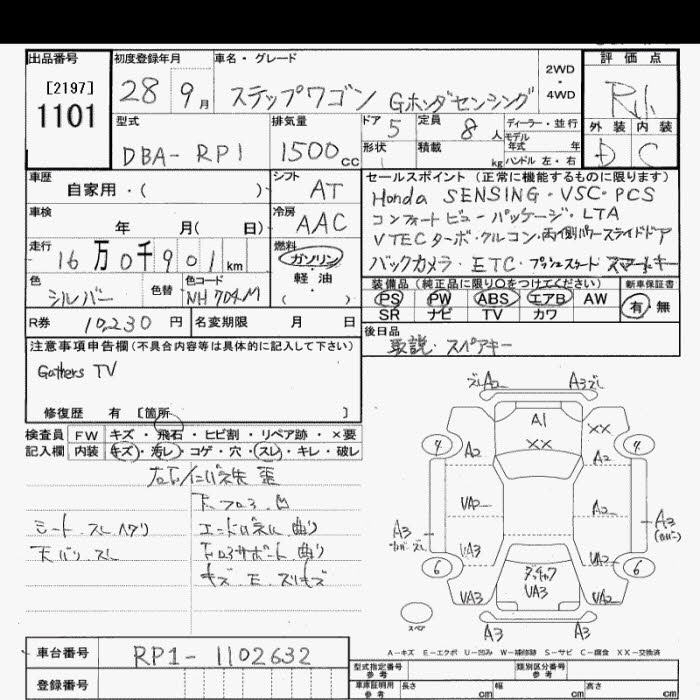 出品番号
[2197]
1101
初度登録年月
28 9月
車名・グレード
ステップワゴン Gホンダセンシング
2WD
・
4WD
評価点
外装 内装
D C
型式
DBA-RP1
排気量
1500cc
ドア 5
定員 8人
ディーラー・並行
モデル
年式 年
形状
積載 kg
ハンドル 左・右
車歴
自家用・( )
シフト AT
車検
年 月( 日)
冷房 AAC
走行
16万0千901km
燃料
ガソリン
・
軽・油
( )
色
シルバー
色替
色コード
NH704M
セールスポイント(正常に機能するものに限ります)
Honda SENSING・VSC・PCS
コンフォートビューパッケージ・LTA
VTECターボ・クルコン・両側パワースライドドア
バックカメラ・ETC・プッシュスタート スマートキー
装備品(純正品に限り○をつけてください)
PS PW ABS エアB AW
SR ナビ TV カワ
新車保証書
有・無
R券 10,230円
名変期限 月 日
後日品
取説・スペアキー
注意事項申告欄(不具合内容等は具体的に記入して下さい)
Gathers TV
修復歴 有 [箇所 ]
検査員
記入欄
FW キズ・飛石・ヒビ割・リペア跡・×要
内装 キズ・汚レ・コゲ・穴・スレ・キレ・破レ
シート スレ ヘタリ
天バリ スレ
下コアサポート 曲り
A2 A3
A1
XX XX
4 4
A2 A2
UA2 A2
A3 A3
UA3 UA2
6 6
UA3 UA3 UA2
A3 A3
スペア
A-キズ E-エクボ U-凹み W-補修跡 S-サビ C-腐食 XX-交換済
車台番号 RP1-1102632
登録番号
型式指定番号
参考
類別区分番号
参考
車庫証明用
参考
長さ cm 幅 cm 高さ cm